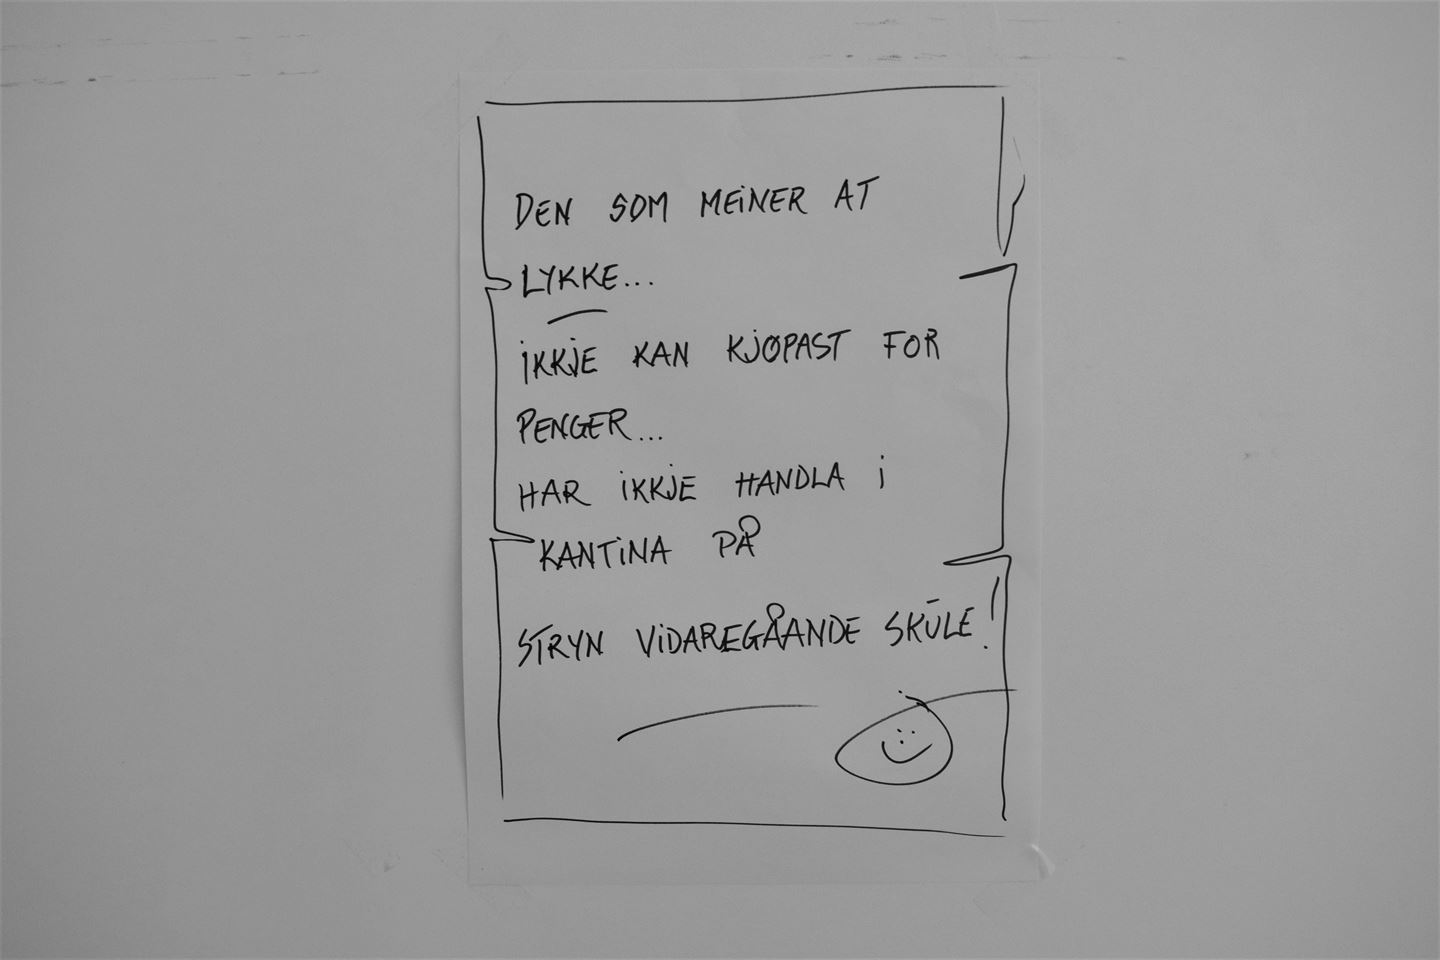 DEN SOM MEINER AT
LYKKE...
IKKJE KAN KJØPAST FOR
PENGER...
HAR IKKJE HANDLA I
KANTINA PÅ
STRYN VIDAREGÅANDE SKŪLE!